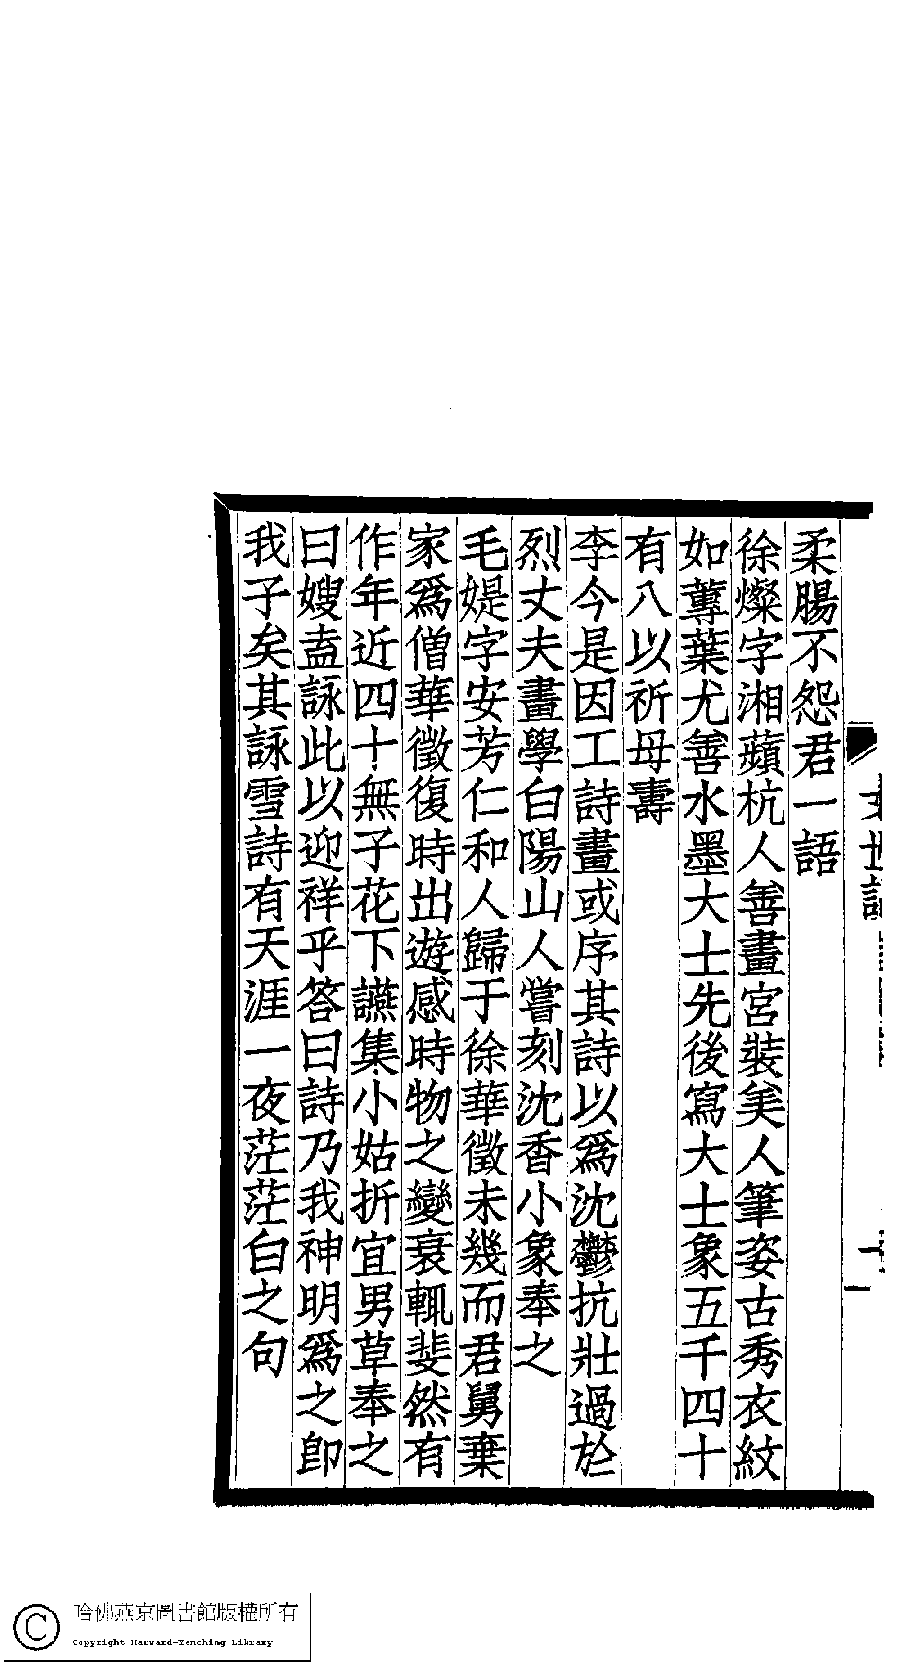 柔腸不怨君一語
徐燦字湘蘋杭人善畫宮裝美人筆姿古秀衣紋
如蓴葉尤善水墨大士先後寫大士象五千四十
有八以祈母壽
李今是因工詩畫或序其詩以爲沈鬱抗壯過於
烈丈夫畫學白陽山人嘗刻沈香小象奉之
毛媞字安芳仁和人歸于徐華徵未幾而君舅棄
家爲僧華徵復時出遊感時物之變衰輒斐然有
作年近四十無子花下讌集小姑折宜男草奉之
曰嫂盍詠此以迎祥乎答曰詩乃我神明爲之卽
我子矣其詠雪詩有天涯一夜茫茫白之句
哈佛燕京圖書館版權所有
Copyright Harvard-Yenching Library